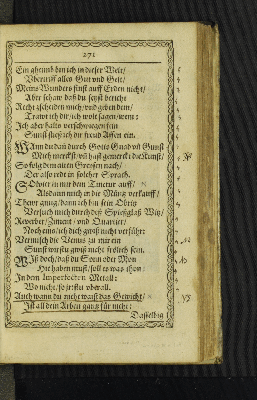 271
Ein gheimb bin ich in dieser Welt/
Vbertriff alles Gut vnd Gelt/
Meins Wunders sinst auff Erden nicht/
Aber schaw daß du seyst bericht
Recht zscheiden mich/ vnd geben dem/
Traw ich dir/ ich wolt sagen/ wem:
Ich aber halts verschwiegen sein
Sinst stieß ich die freud Assen ein.
WAnn du dan durch Gotts Gnad vñ Gunst
Mich merckst/ vñ hast gemerckt die Kunst/
So folg dem alten Greisen nach/
Der also redt in solcher Sprach.
Solvier in mir dem Tinctur auff/
Alsdann mich in die Müntz verkauff/
Thewr gnug/ dann ich bin sein Obriy
Versuch mich durch deß Spießglaß Wiy/
Reverber/ Ziment/ vnd Quartier/
Noch eins/ ich dich gwiß nicht verführ:
Vermisch die Venus zu mir ein
Sinst wirstu gwiß nicht frölich sein.
Wiß doch/ daß du Sonn oder Mon
Hie haben must/ soll es was thon:
In dem Imperfecten Metall:
Wo nicht/ so jrrstu vberall.
Auch wann du nicht waist das Gewicht/
Ist all dein Arbeit gantz für nicht:
Dasselbig